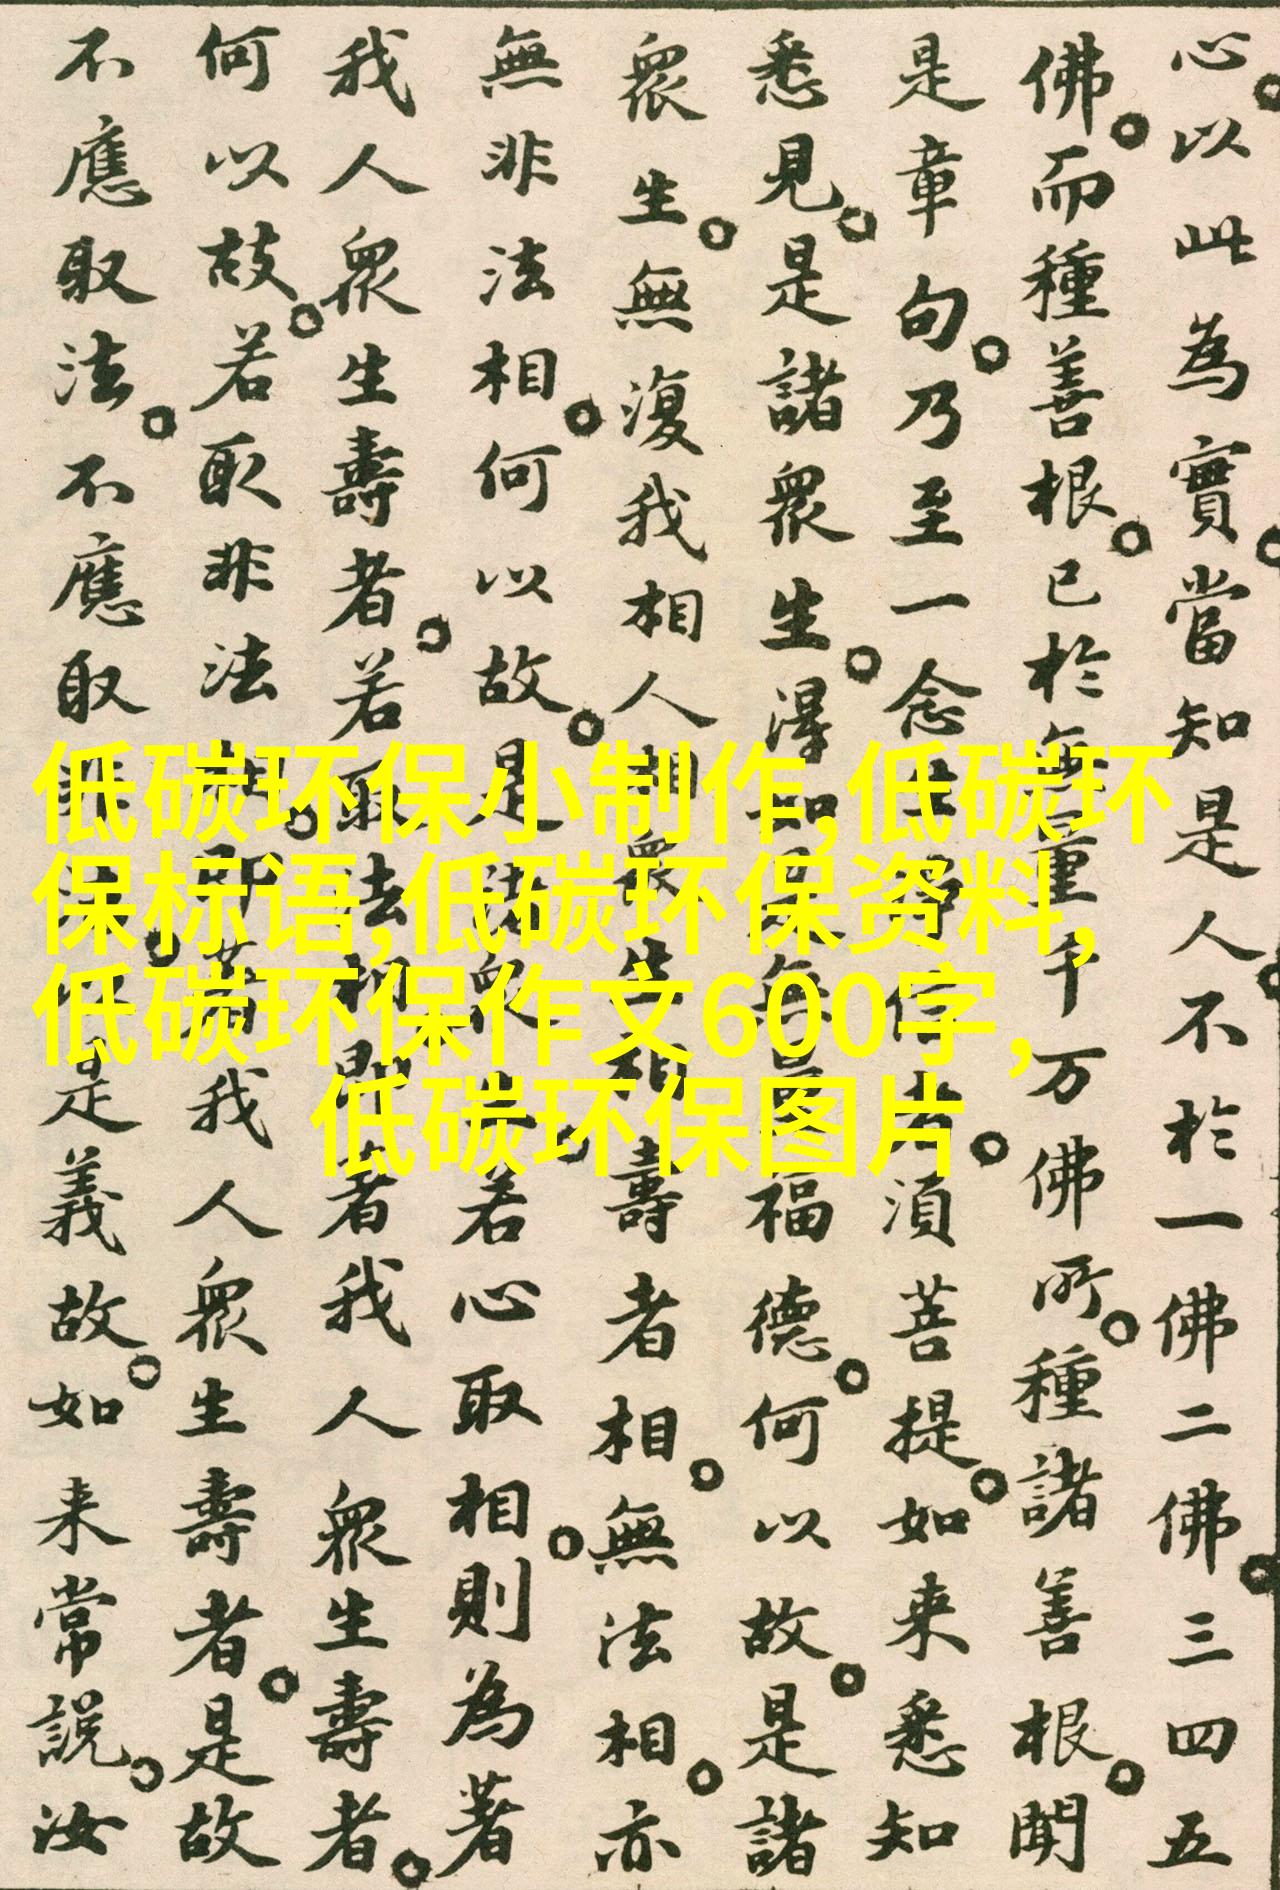 心。以此為實。當知是人。不於一佛二佛。三四五
佛。而種善根。已於無量千万佛所。種諸善根。聞
是章句。乃至一念生淨信者。須菩提。如来悉知
悉見。是諸眾生。得如是無量福德。何以故。是諸
眾生。無復我相人相眾生相壽者相。無法相。亦
無非法相。何以故。是諸眾生。若心取相。則為著
我人眾生壽者。若取法相即著我人眾生壽者。
何以故。若取非法相。即著我人眾生壽者。是故
不應取法。不應取非法。以是義故。如来常說。汝
低碳环保小制作,低碳环
保标语,低碳环保资料,
低碳环保作文600字,
低碳环保图片